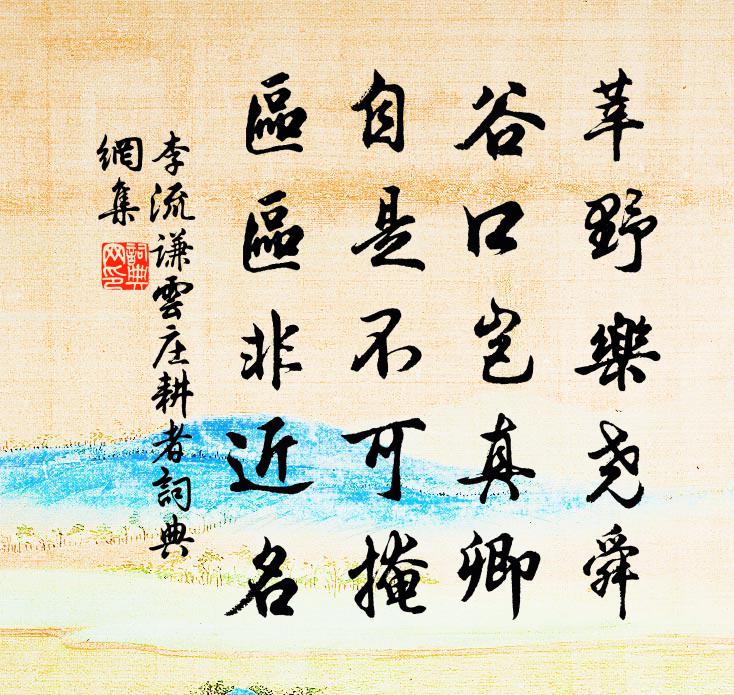 莘野樂尧舜
谷口岂真卿
自是不可掩
區區非近名
李流谦雲庄耕者詞典
網集
詞典
网印